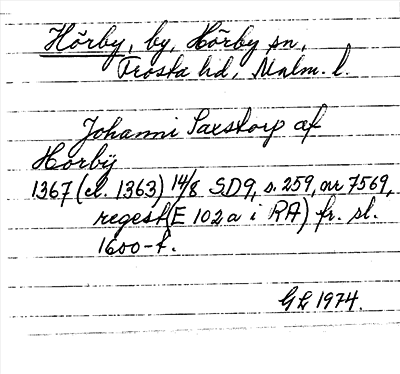 Hörby, by, Hörby sn,
Frosta hd, Malm. l.
Johanni Saxstorp af
Hørbÿ
1367 (el. 1363) 14/8 SD9, s. 259, nr 7569,
regest (E 102 a i RA) fr. sl.
1600-t.
GL 1974.